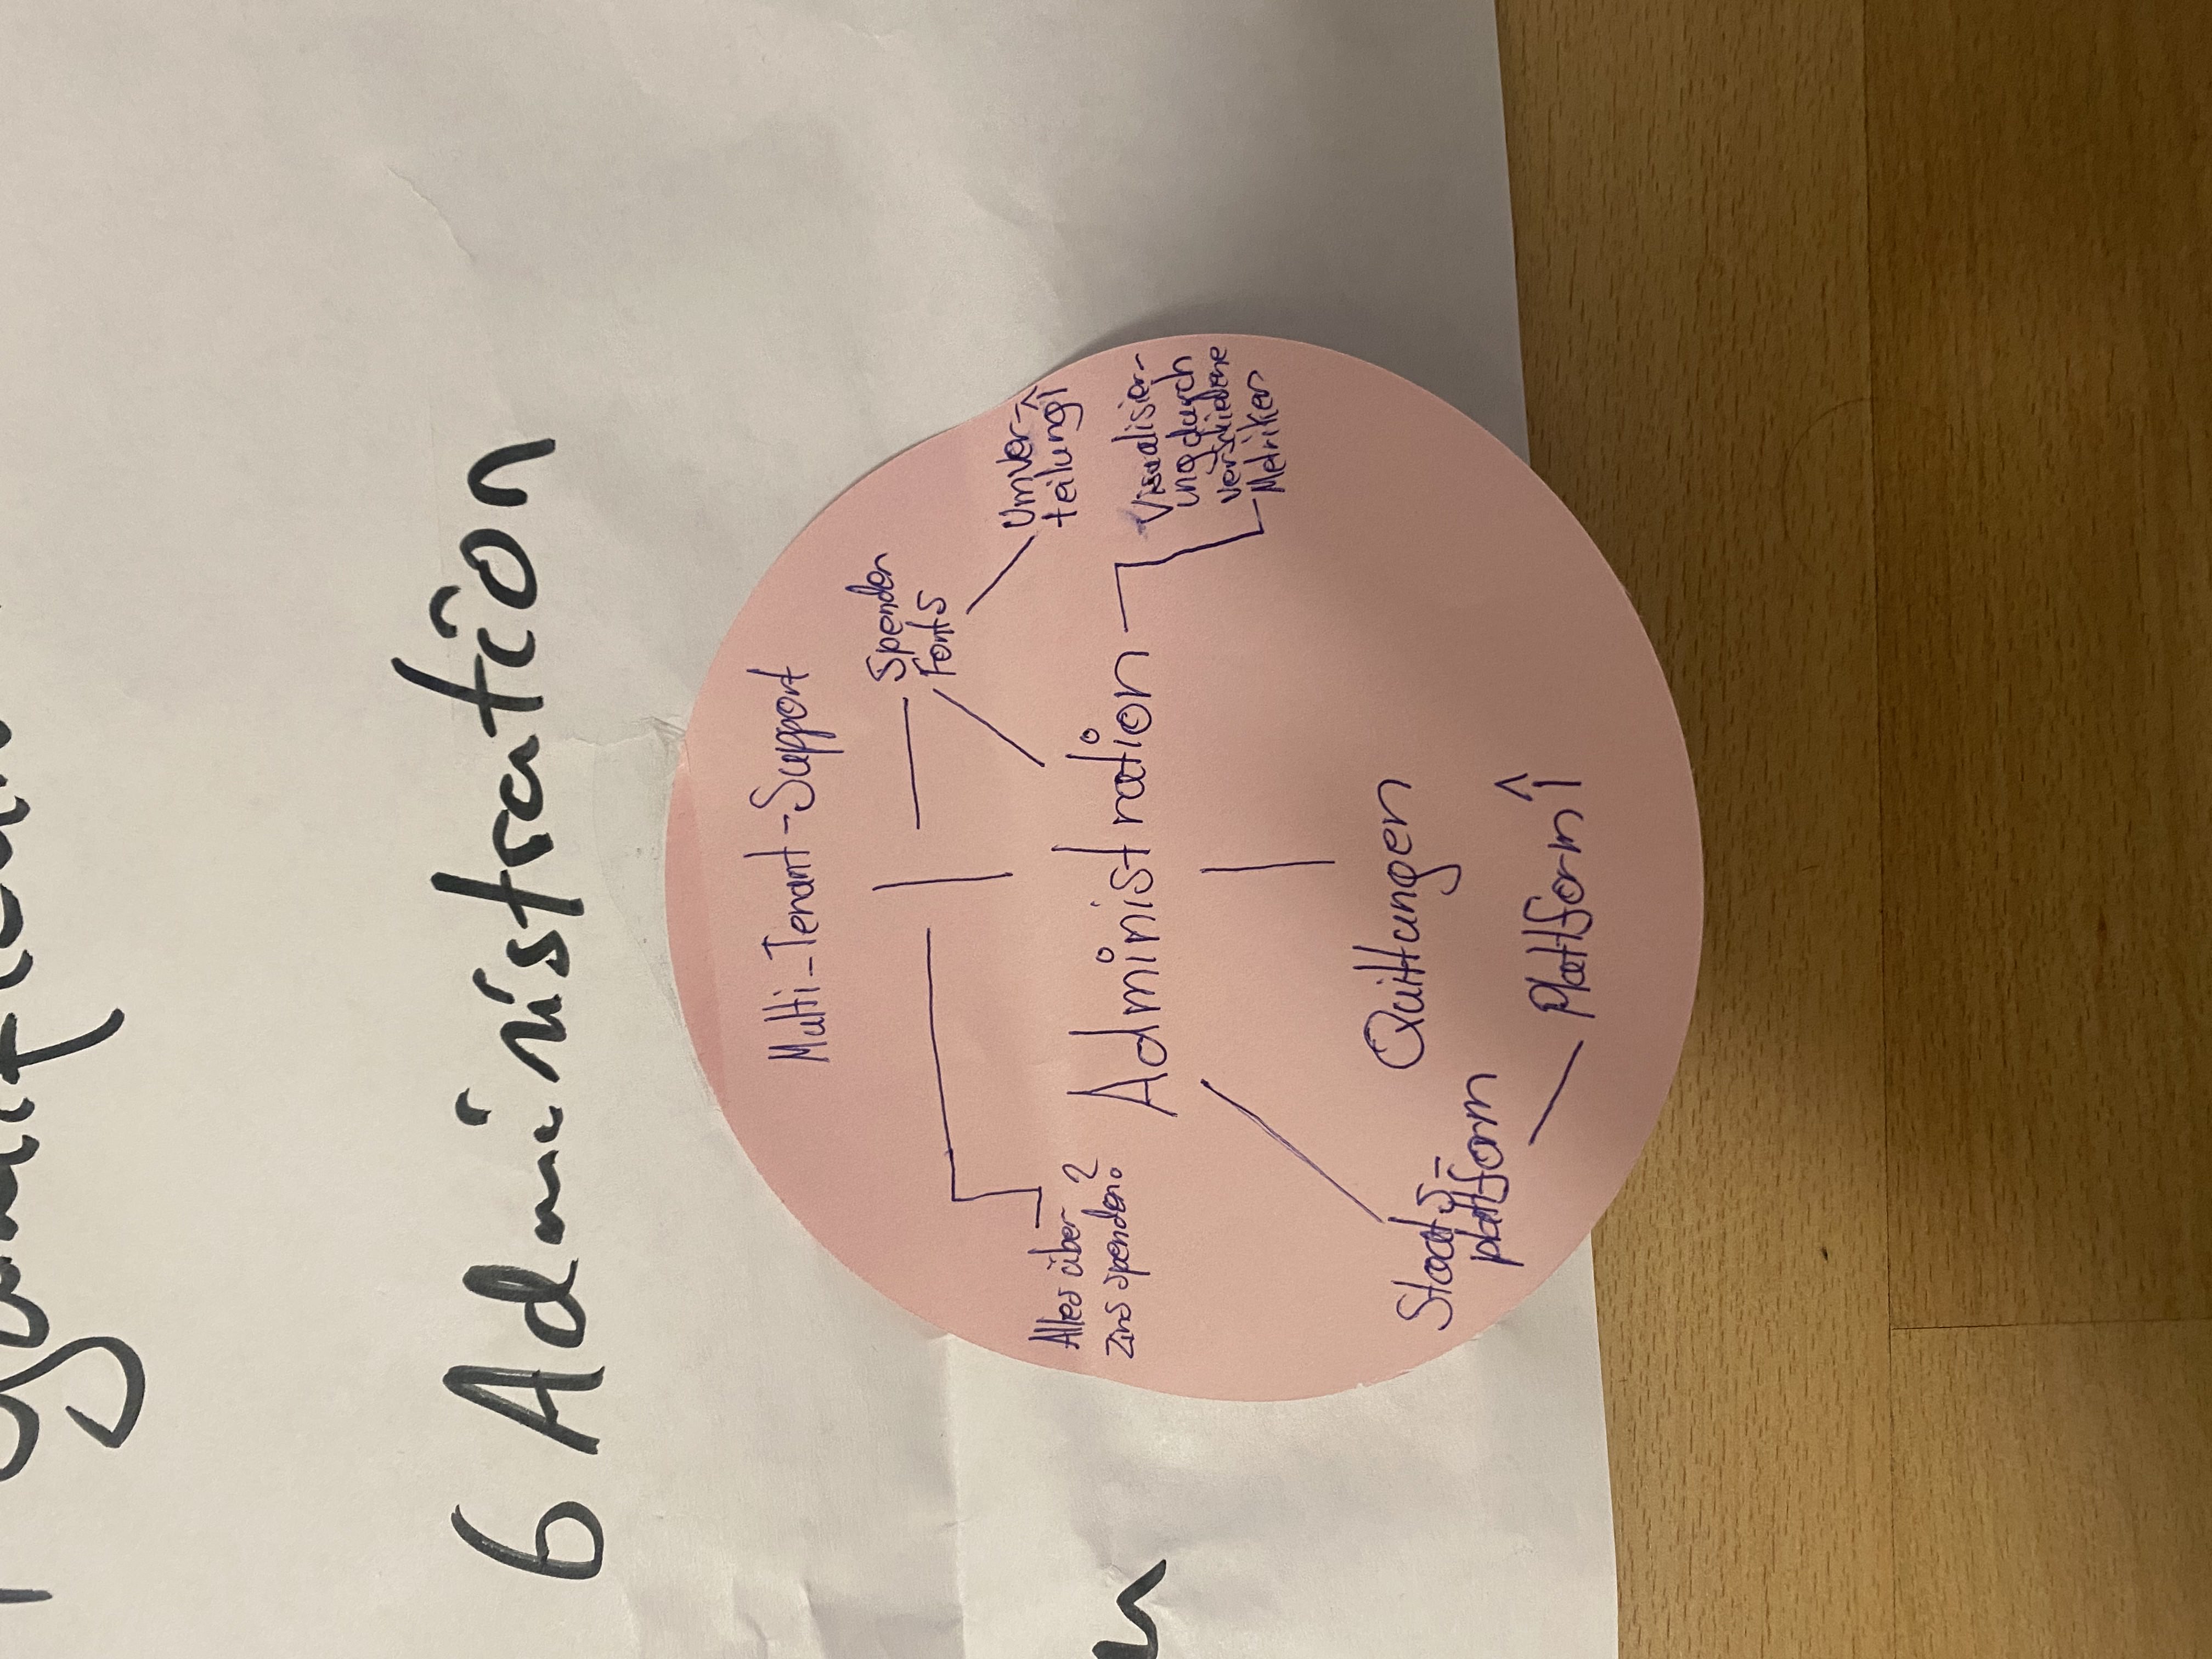 6 Administration
Multi-Tenant-Support
Spenden
Fonts
Umver-
teilung↑
Alles über
zins spenden?
Administration
Visualisier-
ung durch
verschiedene
Metriken
Quittungen
Staats-
plattform
Plattform ↑